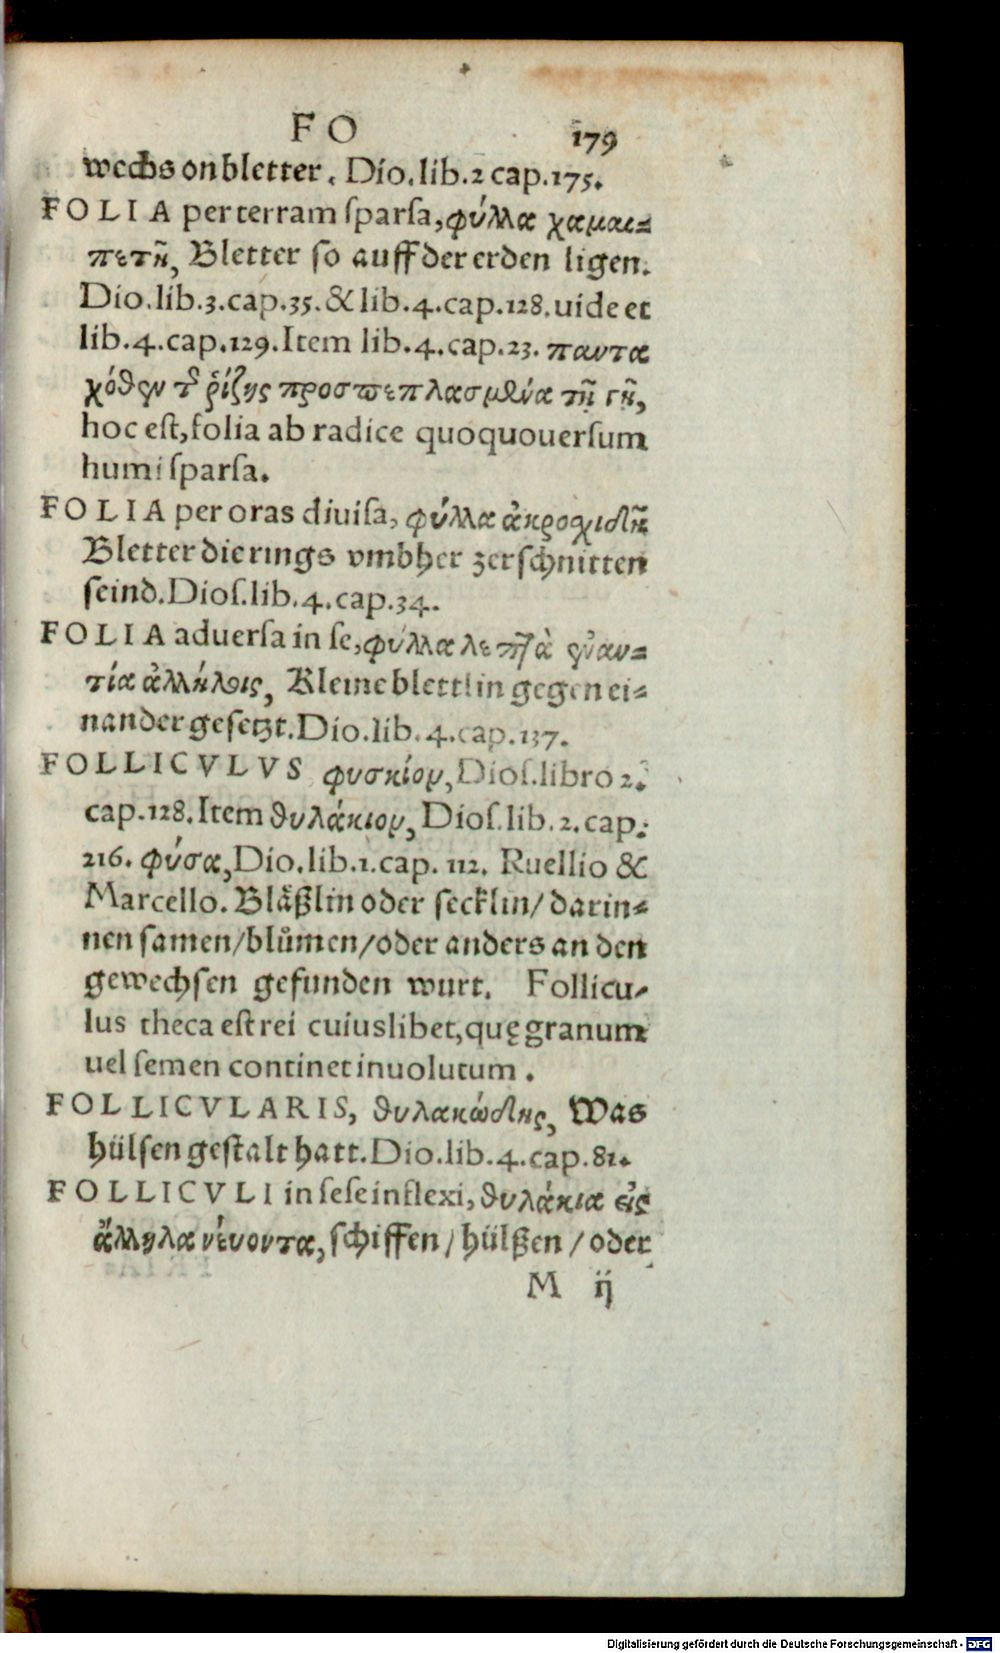 FO 179
wechs on bletter. Dio.lib.2 cap.175.
FOLIA per terram sparsa, φύλλα χαμαι=
πετῆ, Bletter so auff der erden ligen.
Dio.lib.3.cap.35. & lib.4.cap.128. uide et
lib.4.cap.129. Item lib.4.cap.23. παντα
χόθεν τ͂ ῥίζης προσπεπλασμένα τῇ γῇ,
hoc est, folia ab radice quoquouersum
humi sparsa.
FOLIA per oras diuisa, φύλλα ἀκροχιδῆ
Bletter die rings vmbher zerschnitten
seind. Dios.lib.4.cap.34.
FOLIA aduersa in se, φύλλα λεπτὰ ἐναν=
τία ἀλλήλοις, Kleine blettlin gegen ei=
nander gesetzt. Dio.lib.4.cap.137.
FOLLICVLVS φυσκίον, Dios.libro 2.
cap.128. Item θυλάκιον, Dios.lib.2.cap.
216. φύσα, Dio.lib.1.cap.112. Ruellio &
Marcello. Blåßlin oder secklin/ darin=
nen samen/blůmen/oder anders an den
gewechsen gefunden wurt. Follicu=
lus theca est rei cuiuslibet, quę granum
uel semen continet inuolutum.
FOLLICVLARIS, θυλακώδης, Was
hülsen gestalt hatt. Dio.lib.4.cap.81.
FOLLICVLI in sese inflexi, θυλάκια εἰς
ἄλληλα νεύοντα, schiffen/ hülßen/ oder
M ij
Digitalisierung gefördert durch die Deutsche Forschungsgemeinschaft - DFG